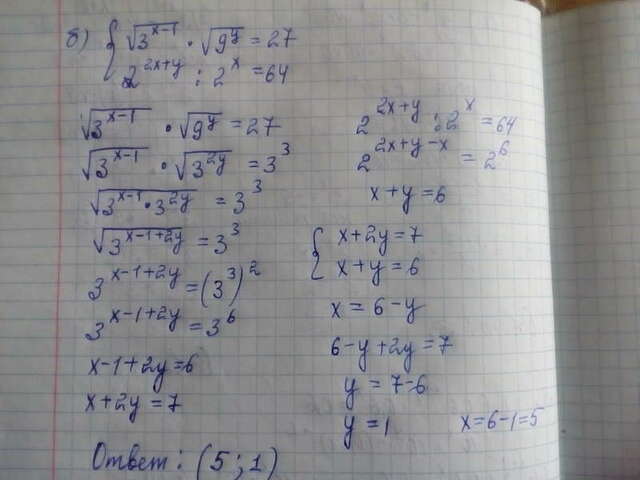 б) { √3^(x-1) · √9^y = 27
2^(2x+y) : 2^x = 64
√3^(x-1) · √9^y = 27
√3^(x-1) · √3^(2y) = 3^3
√(3^(x-1) · 3^(2y)) = 3^3
√3^(x-1+2y) = 3^3
3^(x-1+2y) = (3^3)^2
3^(x-1+2y) = 3^6
x-1+2y=6
x+2y=7
2^(2x+y) : 2^x = 64
2^(2x+y-x) = 2^6
x+y=6
{ x+2y=7
x+y=6
x=6-y
6-y+2y=7
y=7-6
y=1 x=6-1=5
Ответ: (5;1)